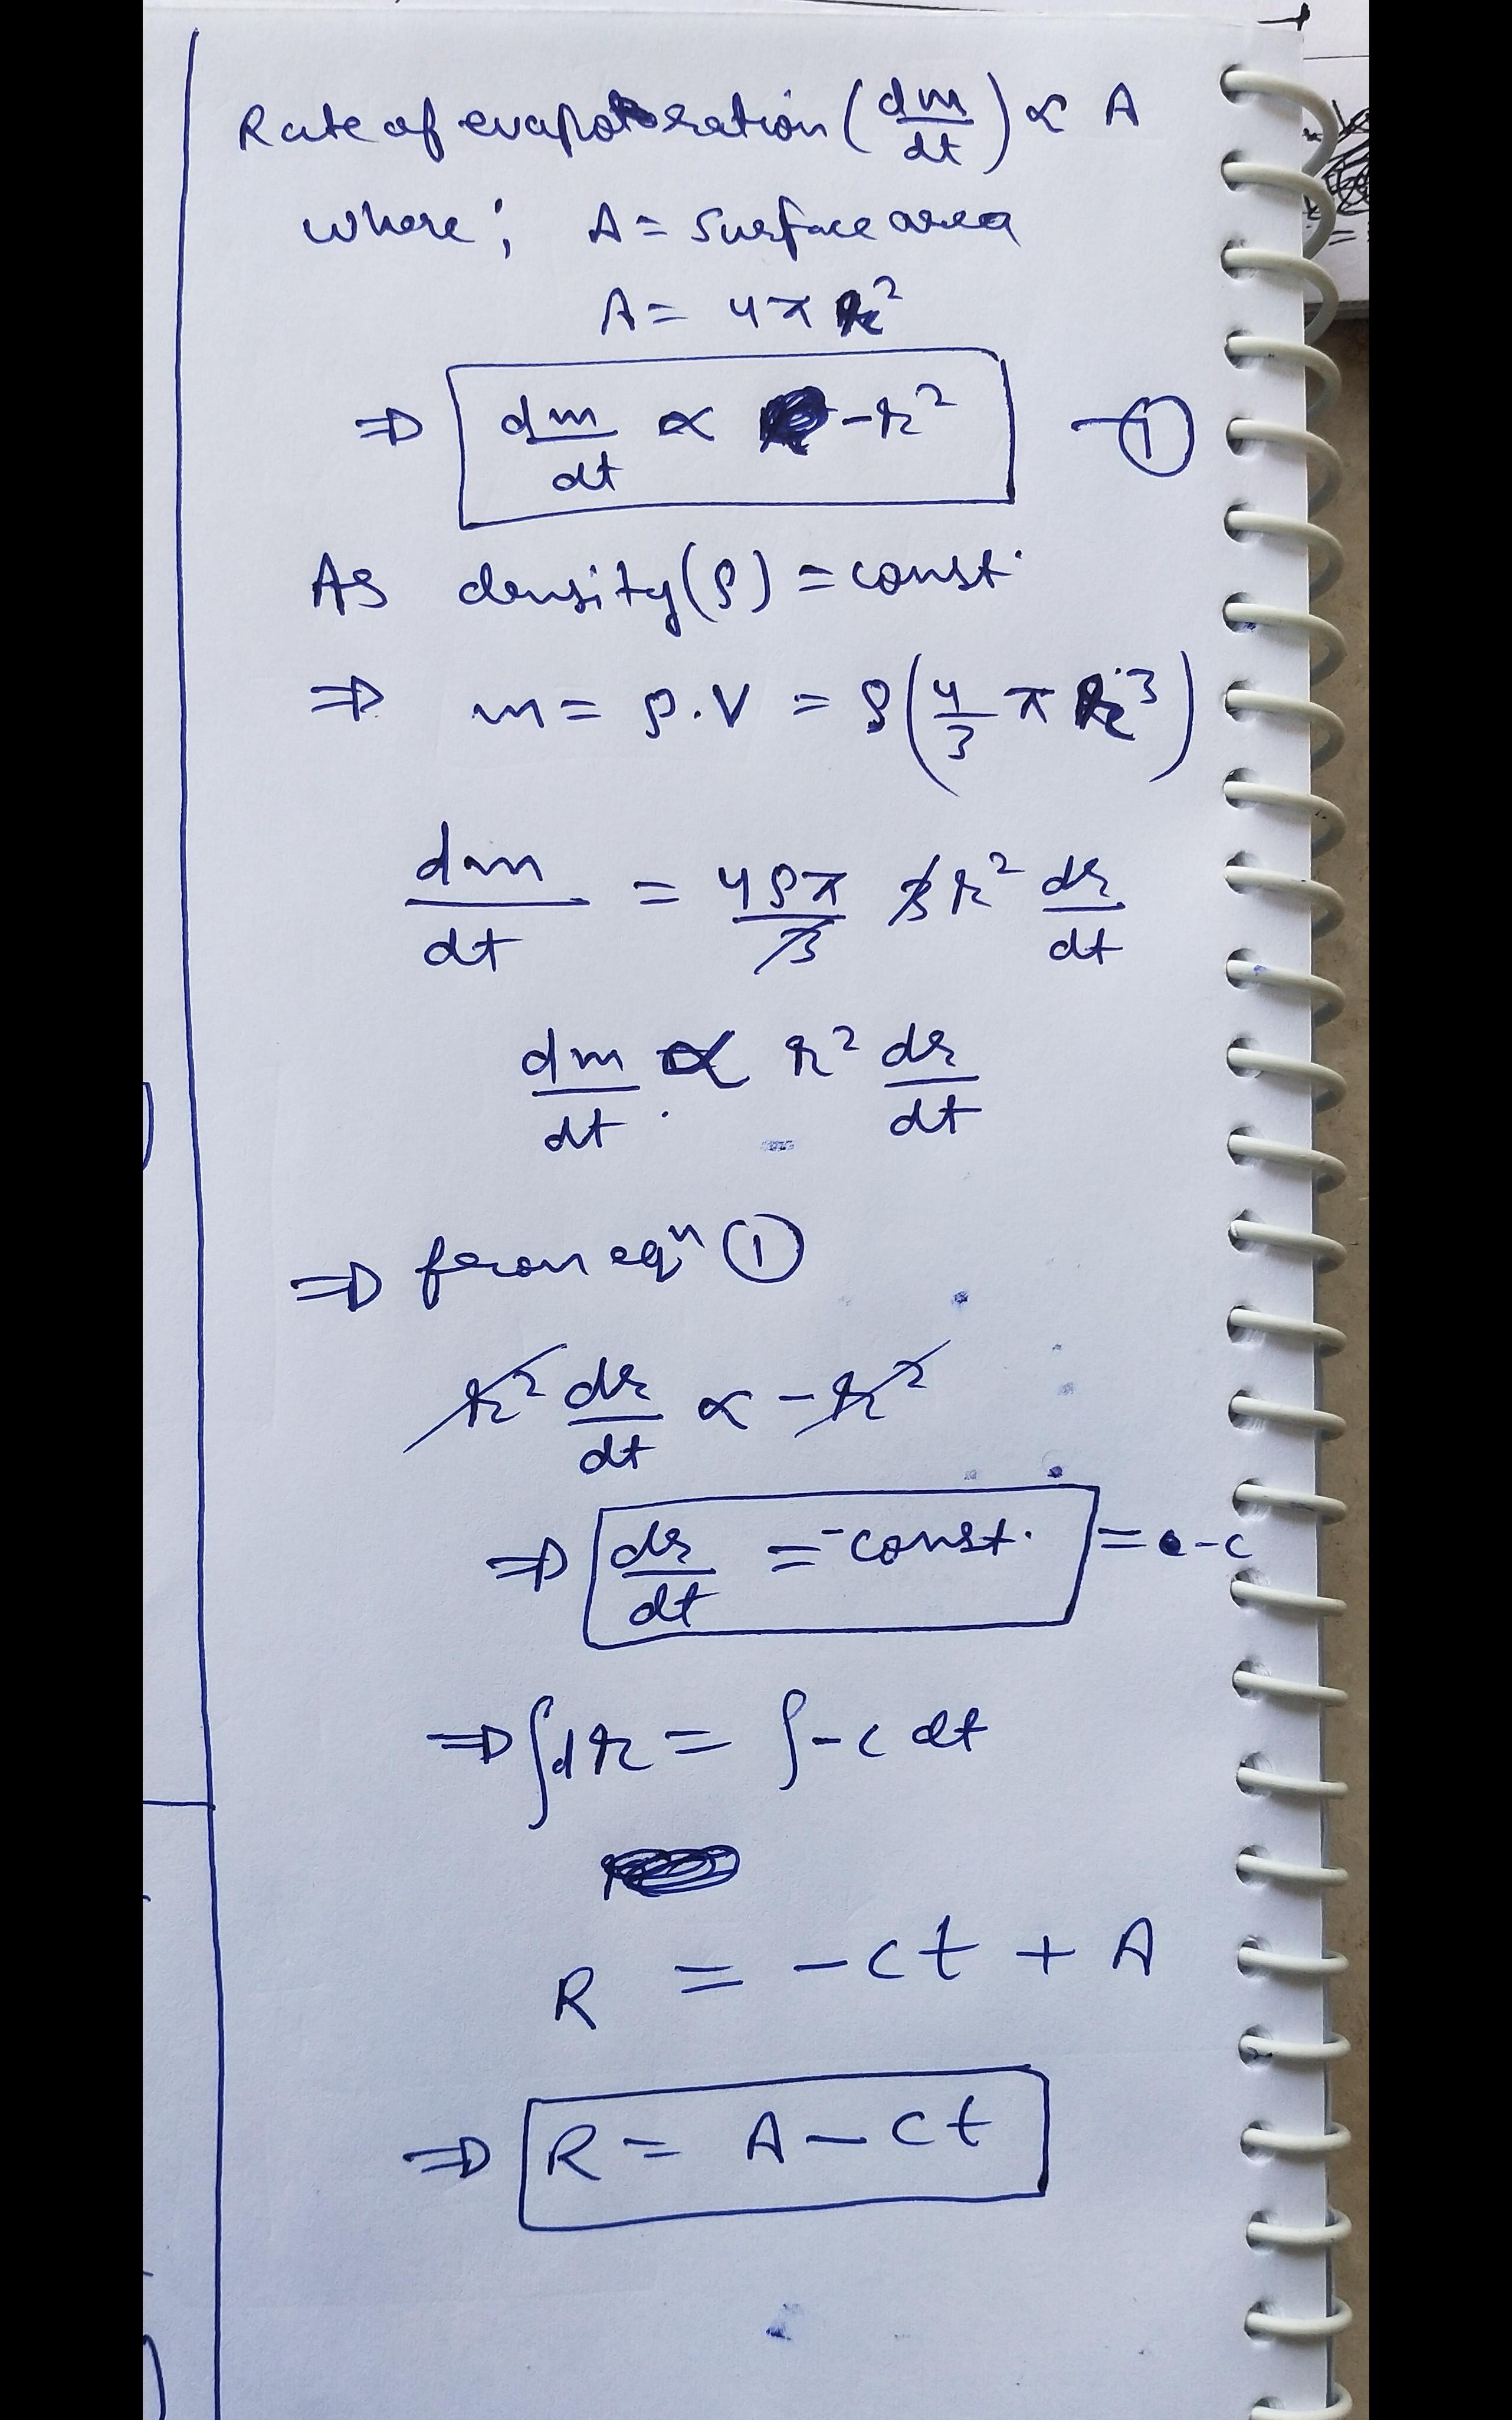 Rate of evaporation (dm/dt) ∝ A
where; A = surface area
A = 4π r²
⇒ dm/dt ∝ -r² — ①
As density (ρ) = const.
⇒ m = ρ.V = ρ(4/3 π r³)
dm/dt = 4ρπ/3 3r² dr/dt
dm/dt ∝ r² dr/dt
⇒ from eqⁿ ①
r² dr/dt ∝ -r²
⇒ dr/dt = -const. = -c
⇒ ∫dr = ∫-c dt
R = -ct + A
⇒ R = A - ct